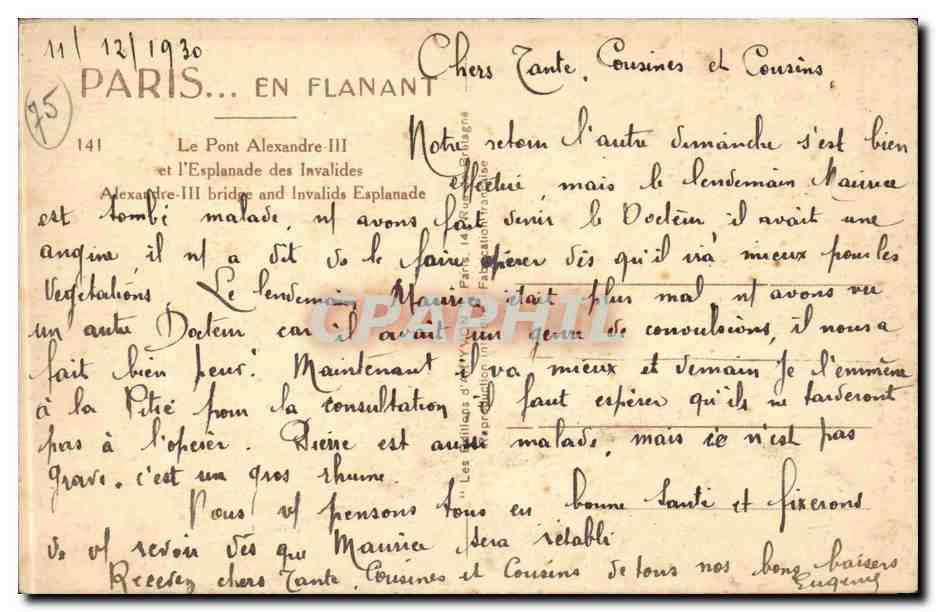 11/12/1930
Chers Tante, Cousines et Cousins,
75
PARIS... EN FLANANT
141 Le Pont Alexandre-III
et l'Esplanade des Invalides
Alexandre-III bridge and Invalids Esplanade
Notre retour l'autre dimanche s'est bien
effectué, mais le lendemain Maurice
est tombé malade, n/ avons fait venir le Docteur, il avait une
angine, il n/ a dit de le faire opérer dès qu'il ira mieux pour les
végétations. Le lendemain Maurice était plus mal, n/ avons vu
un autre Docteur car il avait un genre de convulsions, il nous a
fait bien peur! Maintenant il va mieux et demain je l'emmène
à la Pitié pour la consultation il faut espérer qu'ils ne tarderont
pas à l'opérer. Pierre est aussi malade, mais ce n'est pas
grave, c'est un gros rhume.
Nous v/ pensons tous en bonne santé et fixerons
de v/ revoir dès que Maurice sera rétabli
Recevez chers Tante, Cousines et Cousins de tous nos bons baisers
Eugénie
"Les Editions d'Art YVON" Paris, 14 Rue Bretagne
Reproduction interdite Fabrication française
CPAPHIL